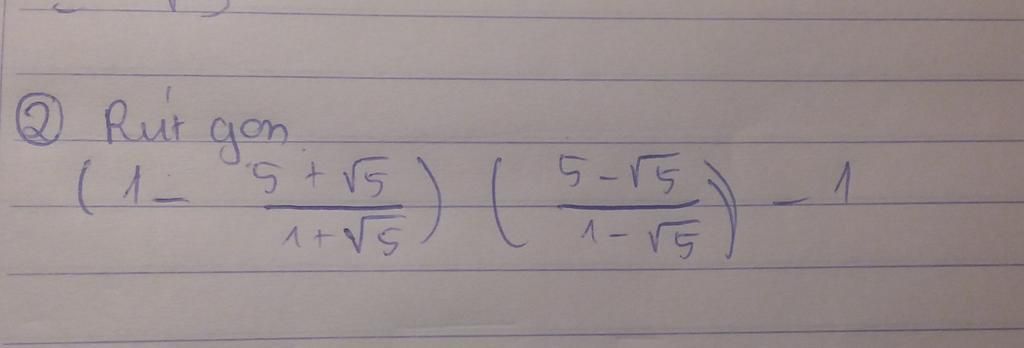 ② Rút gọn
( 1 - \frac{5 + \sqrt{5}}{1 + \sqrt{5}} ) ( \frac{5 - \sqrt{5}}{1 - \sqrt{5}} ) - 1